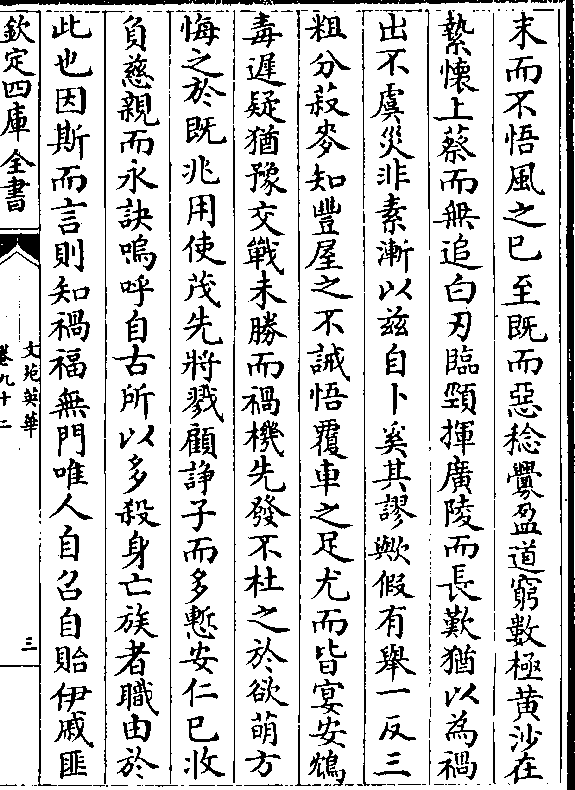 末而不悟風之已至既而惡稔釁盈道窮數極黄沙在
縶懷上蔡而無追白刃臨頸揮廣陵而長歎猶以為禍
出不虞災非素漸以兹自卜奚其謬歟假有舉一反三
粗分菽麥知豐屋之不誡悟覆車之足尤而皆宴安鴆
毒遲疑猶豫交戰未勝而禍機先發不杜之於欲萌方
悔之於既兆用使茂先將戮顧諍子而多慙安仁已收
負慈親而永訣嗚呼自古所以多殺身亡族者職由於
此也因斯而言則知禍福無門唯人自召自貽伊戚匪
欽定四庫全書
文苑英華
卷九十二
三